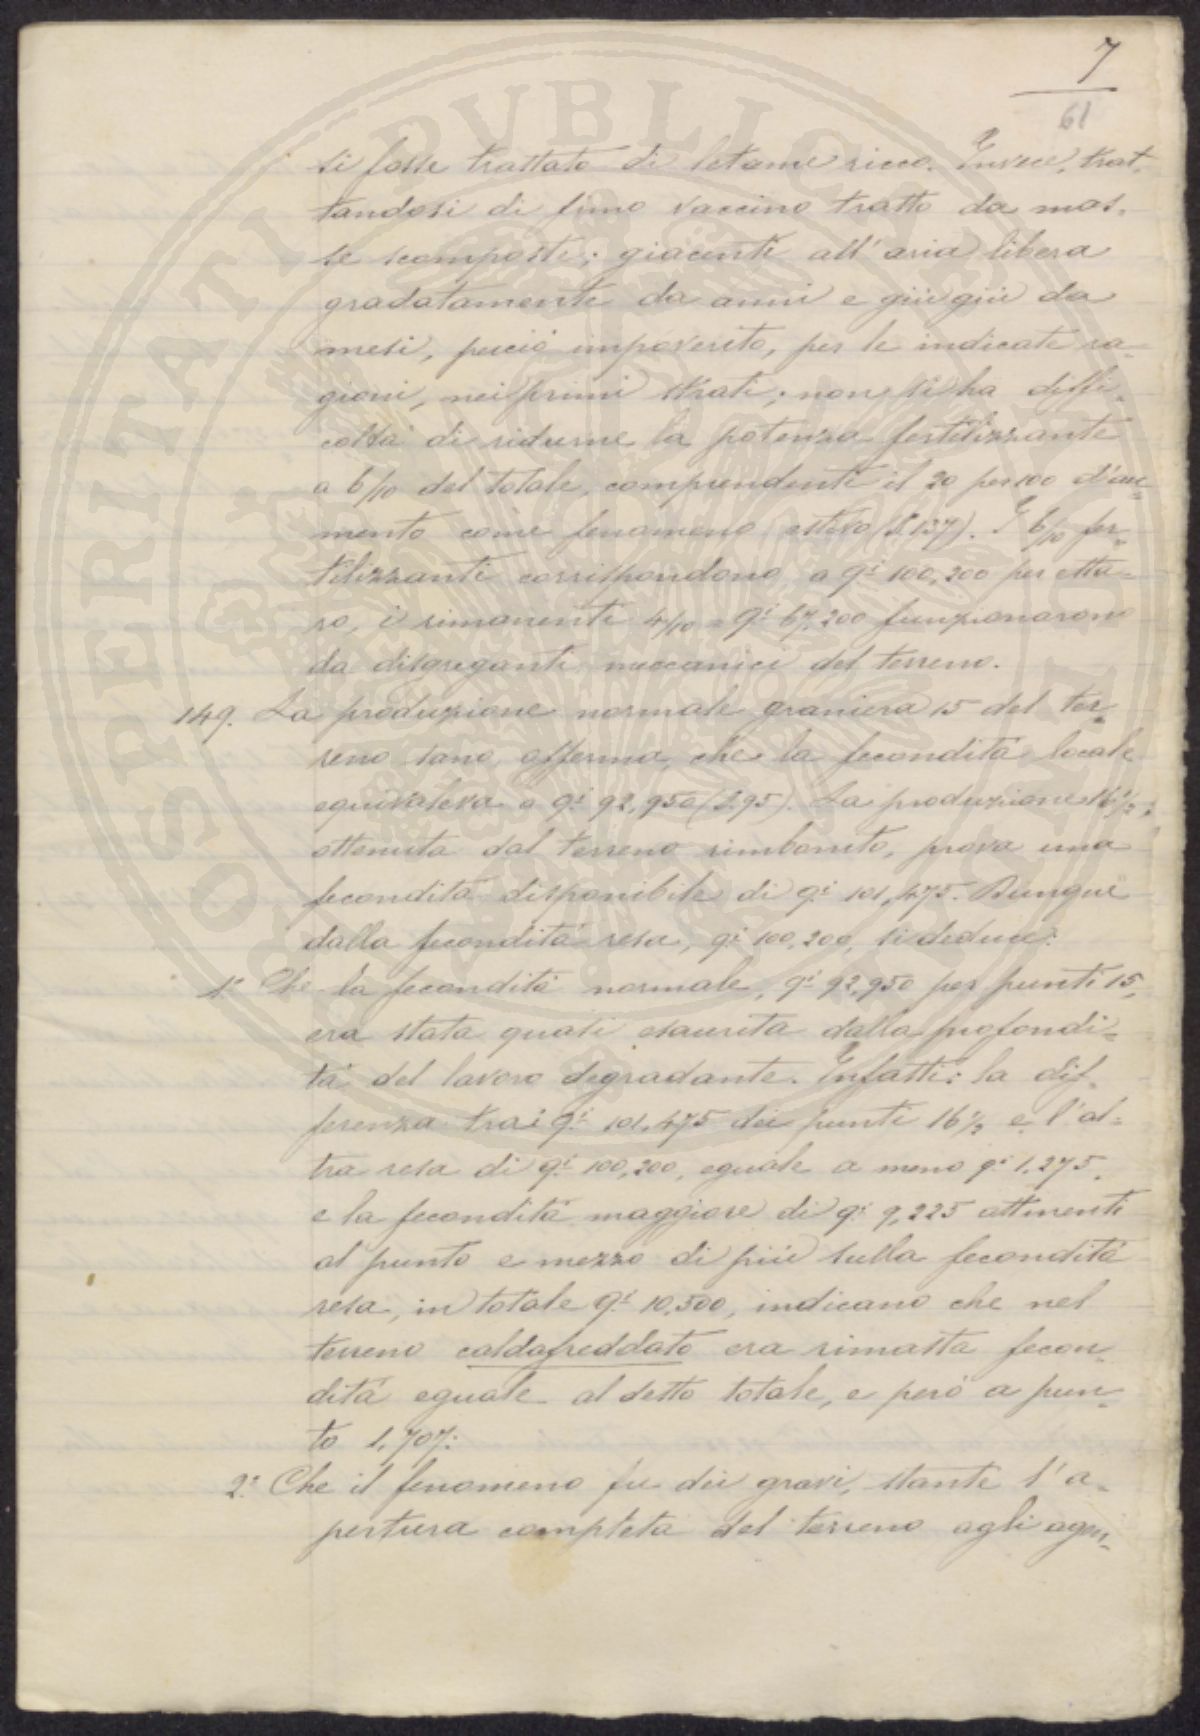 7
61
si fosse trattato di letame ricco. Invece, trat-
tandosi di fimo vaccino tratto da mas-
se scomposti; giacenti all'aria libera
gradatamente da anni e giù giù da
mesi, perciò impoverito, per le indicate ra-
gioni, nei primi strati; non si ha diffi-
coltà di ridurne la potenza fertilizzante
a 6/10 del totale, comprendenti il 20 per 100 d'au-
mento come fenomeno estivo (§ 137). I 6/10 fer-
tilizzanti corrispondono a q.i 100,200 per etta-
ro, i rimanenti 4/10 = q.i 67,200 funzionarono
da disgreganti meccanici del terreno.
149. La produzione normale graniera 15 del ter-
reno sano afferma, che la fecondità locale
equivaleva a q.i 92,950 (§ 95). La produzione 16 1/2,
ottenuta dal terreno rimbonito, prova una
fecondità disponibile di q.i 101,475. Dunque
dalla fecondità resa, q.i 100,200, si deduce:
1.° Che la fecondità normale, q.i 92,950 per punti 15,
era stata quasi esaurita dalla profondi-
tà del lavoro degradante. Infatti: la dif-
ferenza tra i q.i 101,475 dei punti 16 1/2 e l'al-
tra resa di q.i 100,200, eguale a meno q.i 1,275,
e la fecondità maggiore di q.i 9,225 attinenti
al punto e mezzo di più sulla fecondità
resa, in totale q.i 10,500, indicano che nel
terreno caldafreddato era rimasta fecon-
dità eguale al detto totale, e però a pun-
to 1,707:
2.° Che il fenomeno fu dei gravi, stante l'a-
pertura completa del terreno agli agen-
PROSPERITATI PUBLICAE